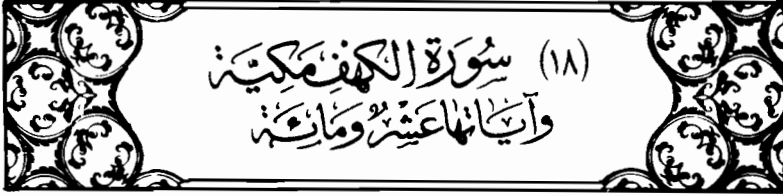 (١٨) سُورَة الكهْفِ مَكِيَّة
وَآيَاتهَا عَشْرٌ وَمَائَة